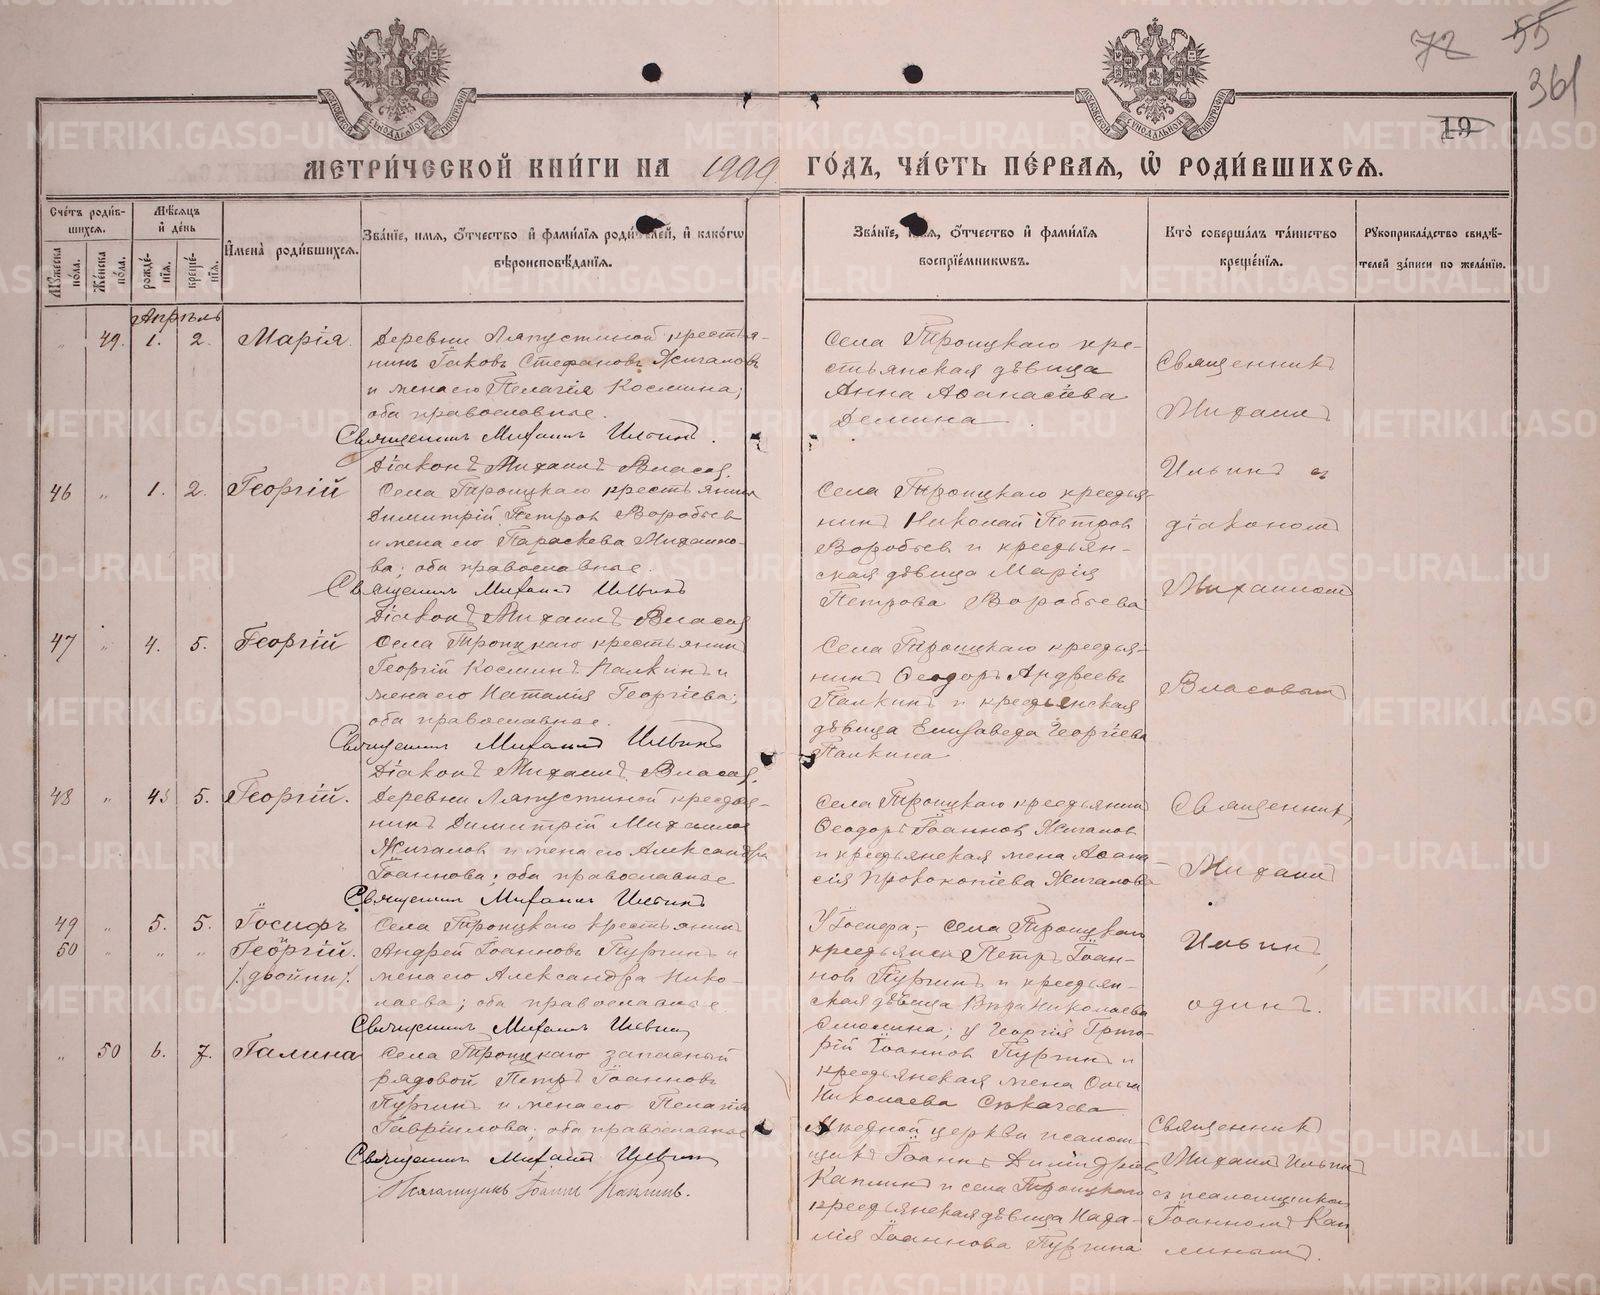 72 55
361
19
МЕТРИ́ЧЕСКОЙ КНИ́ГИ НА 1999 ГО́ДЪ, ЧА́СТЬ ПЕ́РВАЯ, Ѡ҆ РОДИ́ВШИХСЯ.
Сче́тъ роди́в-
шихся.
Мѣ́сяцъ
и҆ де́нь
Мꙋ́жеска по́ла.
Же́нска по́ла.
рожде́-
нїя.
креще́-
нїя.
И҆мена̀ роди́вшихся.
Зва́нїе, имя, о҆́тчество и҆ фами́лїя роди́телей, и҆ како́гѡ
вѣроисповѣ́данїя.
Зва́нїе, имя, о҆́тчество и҆ фами́лїя
воспрїе́мникѡвъ.
Кто̀ соверша́лъ та́инство
креще́нїя.
Рꙋкоприкла́дство свидѣ́-
телей за́писи по жела́нїю.
Апрѣль
" 49. 1. 2. Марія.
Деревни Ляпустиной крестья-
нинъ Іаковъ Стефановъ Жигаловъ
и жена его Пелагія Космина;
оба православные.
Священникъ Михаилъ Ильинъ.
Діаконъ Михаилъ Власов.
Села Троицкаго кре-
стьянская дѣвица
Анна Аѳанасіева
Демина.
Священникъ
Михаилъ
Ильинъ съ
діакономъ
Михаиломъ
Власовымъ
46 " 1. 2. Георгій
Села Троицкаго крестьянинъ
Димитрій Петров Воробьев
и жена его Параскева Михаило-
ва; оба православные.
Священникъ Михаилъ Ильинъ
Діаконъ Михаилъ Власов
Села Троицкаго крестья-
нинъ Николай Петров
Воробьев и крестьян-
ская дѣвица Марія
Петрова Воробьева
47 " 4. 5. Георгій
Села Троицкаго крестьянинъ
Георгій Косминъ Палкинъ и
жена его Наталія Георгіева;
оба православные.
Священникъ Михаилъ Ильинъ
Діаконъ Михаилъ Власов.
Села Троицкаго крестья-
нинъ Ѳеодоръ Андреевъ
Палкинъ и крестьянская
дѣвица Елисавета Георгіева
Палкина
48 " 5. Георгій.
Деревни Ляпустиной крестья-
нинъ Димитрій Михаилов
Жигалов и жена его Александра
Іоаннова; оба православные
Священникъ Михаилъ Ильинъ
Села Троицкаго крестьянинъ
Ѳеодоръ Іоаннов Жигалов
и крестьянская жена Аѳана-
сія Прокопіева Жигалова
Священникъ
Михаилъ
Ильинъ,
одинъ.
49 " 5. 5. Іосифъ
50 " " " Георгій.
/.двойни/.
Села Троицкаго крестьянинъ
Андрей Іоанновъ Пургинъ и
жена его Александра Нико-
лаева; оба православные.
Священникъ Михаилъ Ильинъ
У Іосифа,- села Троицкаго
крестьянинъ Петръ Іоан-
нов Пургинъ и крестьян-
ская дѣвица Вѣра Николаева
у Георгія Григо-
рій Іоаннов Пургинъ и
крестьянская жена Ольга
Николаева Секачева
" 50 6. 7. Галина
Села Троицкаго запасный
рядовой Петръ Іоанновъ
Пургинъ и жена его Пелагія
Гавріилова; оба православные
Священникъ Михаилъ Ильинъ
Псаломщикъ Іоаннъ Каплинъ.
Мѣстной церкви псалом-
щикъ Іоаннъ Димитріевъ
Каплинъ и села Троицкаго
крестьянская дѣвица Ната-
лія Іоаннова Пургина
Священникъ
Михаилъ Ильинъ
съ псаломщикомъ
Іоанномъ Кап-
линымъ.
METRIKI.GASO-URAL.RU